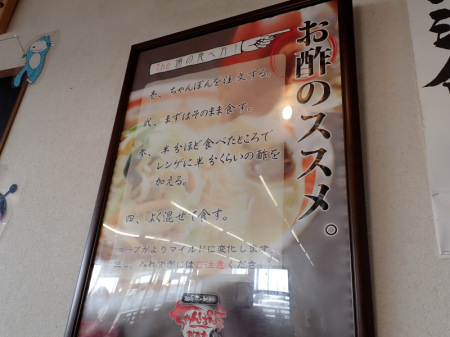 お酢のススメ。
The 酢の食べ方!
壱、ちゃんぽんを注文する。
弐、まずはそのまま食す。
半分ほど食べたところで
レンゲに半分くらいの酢を
加える。
四、よく混ぜて食す。
スープがよりマイルドに変化します
ご注意ください。
ちゃんぽん